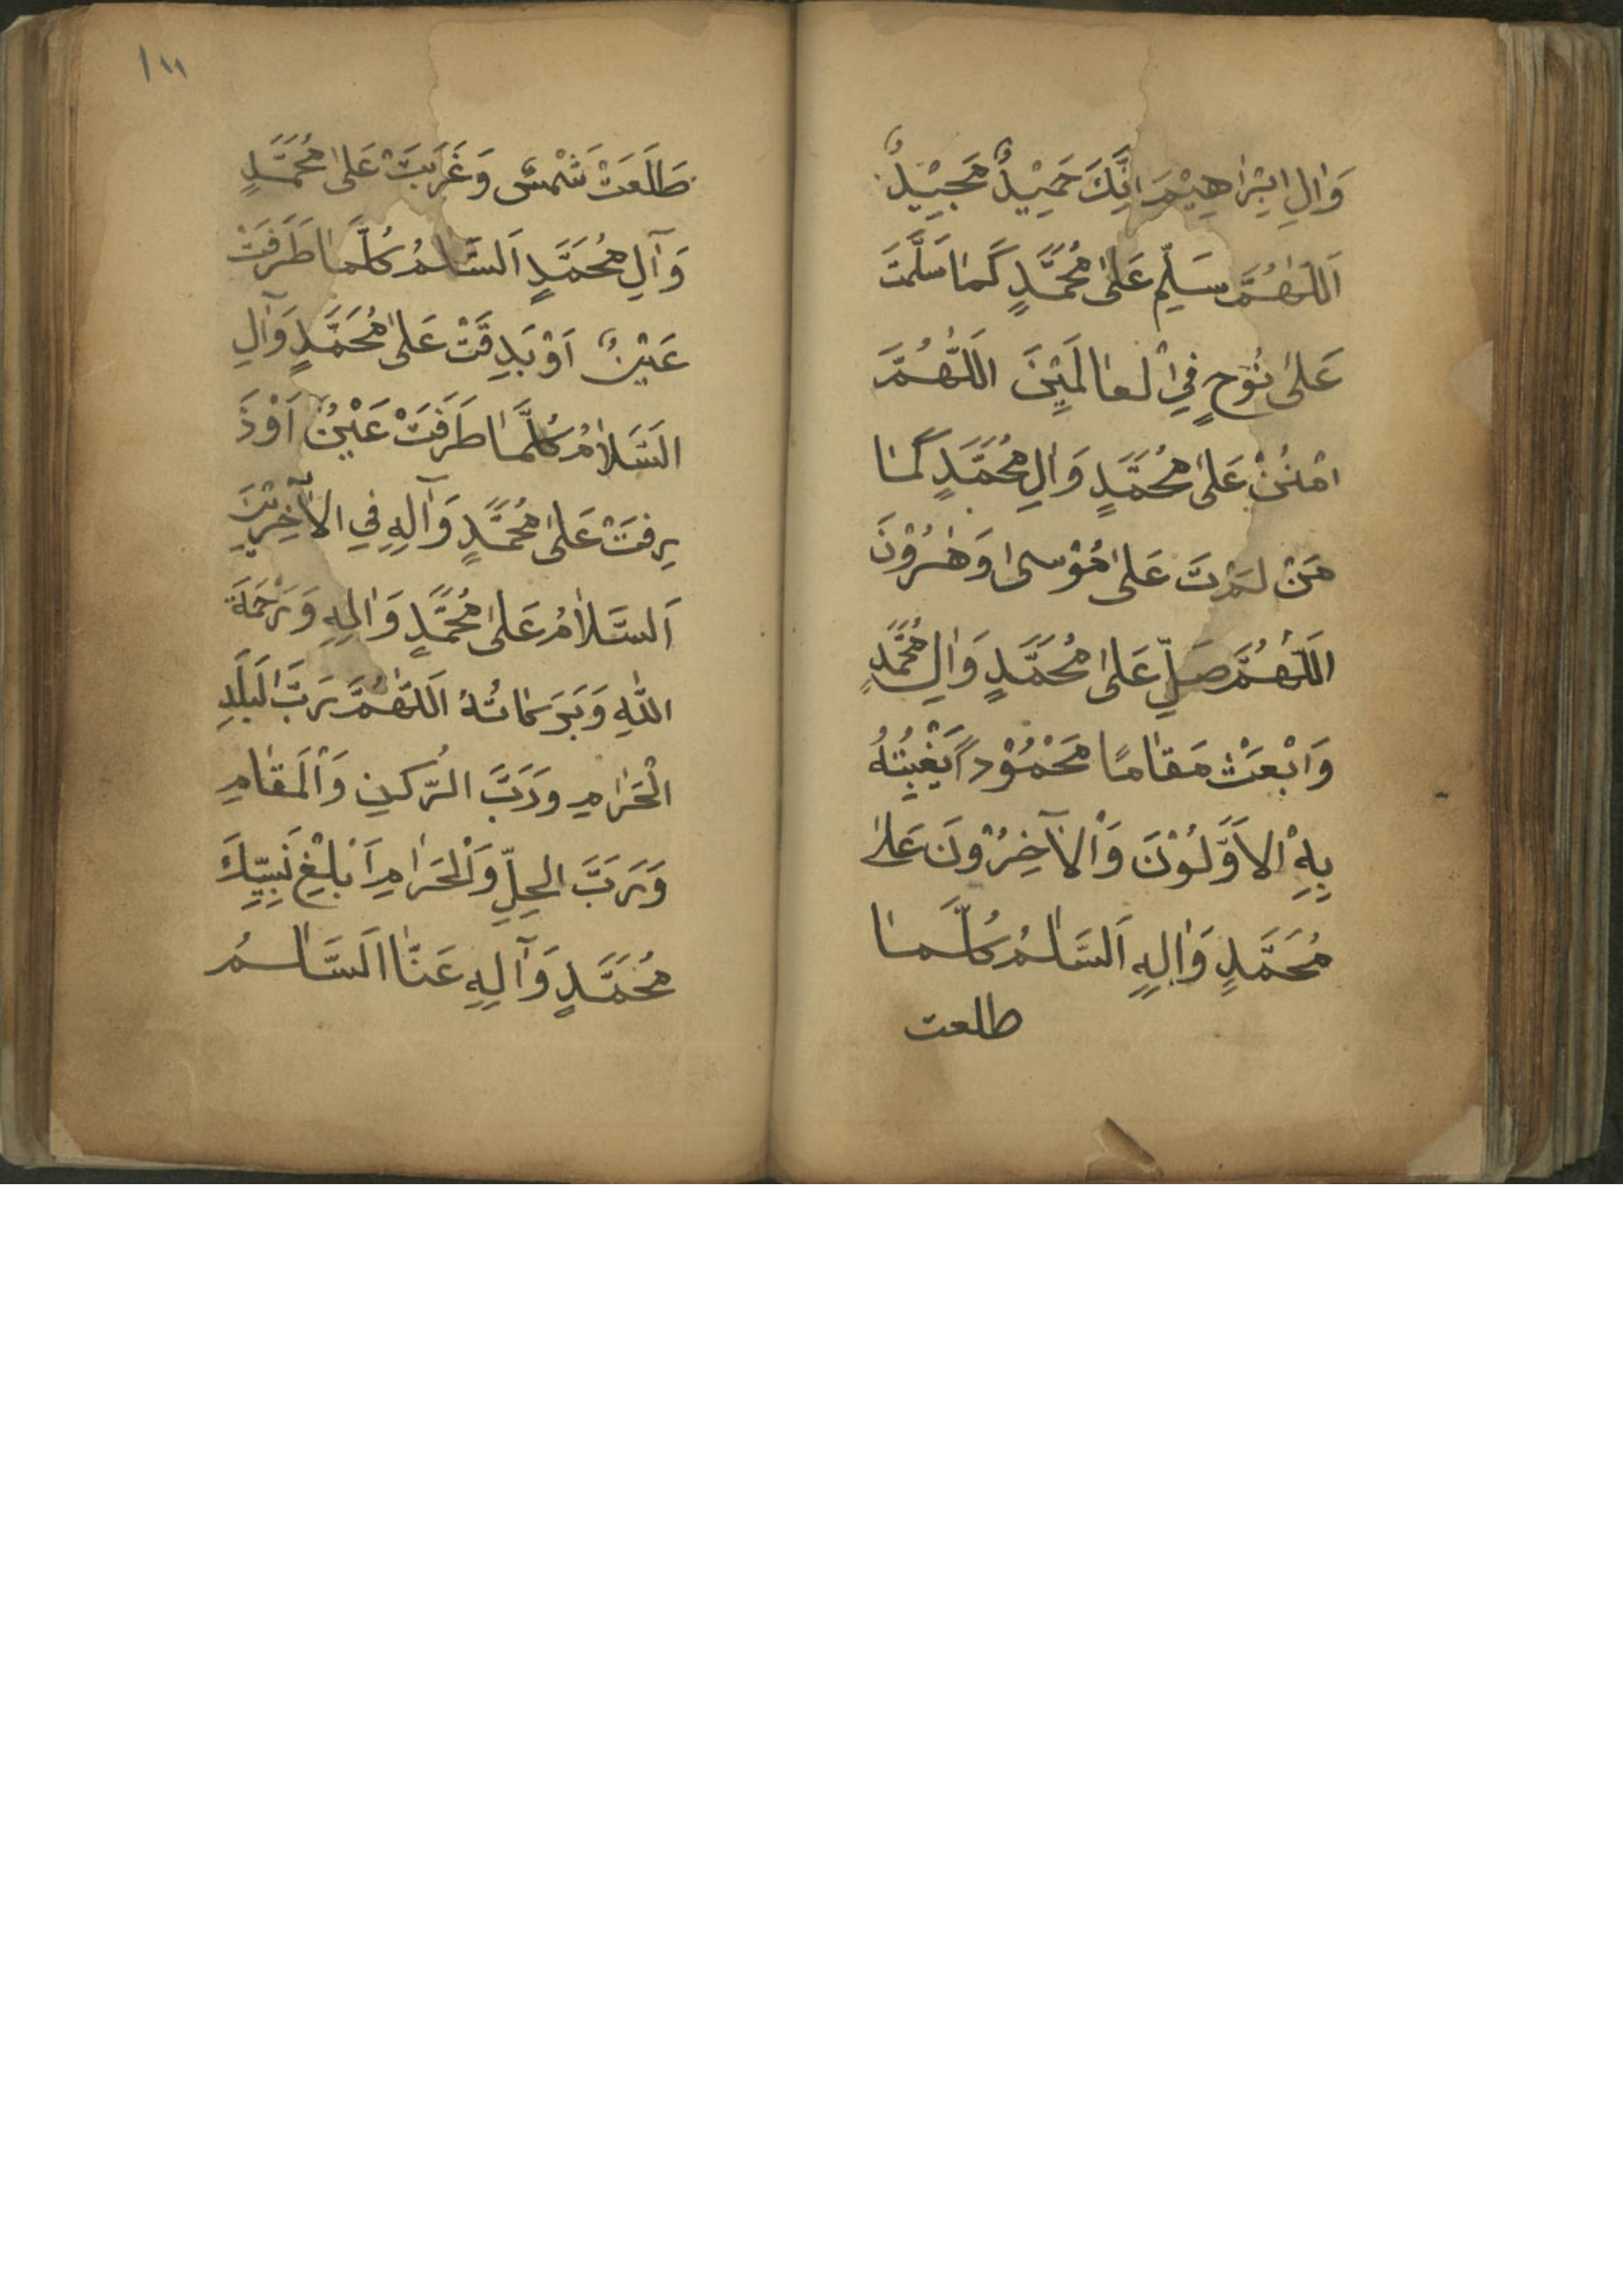 وَاٰلِ اِبْرٰاهِيْمَ اِنَّكَ حَمِيْدٌ مَجِيْدٌ
اَللّٰهُمَّ سَلِّمْ عَلىٰ مُحَمَّدٍ كَمٰا سَلَّمْتَ
عَلىٰ نُوْحٍ فِيْ الْعٰالَمِيْنَ اَللّٰهُمَّ
امْنُنْ عَلىٰ مُحَمَّدٍ وَاٰلِ مُحَمَّدٍ كَمٰا
مَنْنَتَ عَلىٰ مُوْسىٰ وَهٰرُوْنَ
اَللّٰهُمَّ صَلِّ عَلىٰ مُحَمَّدٍ وَاٰلِ مُحَمَّدٍ
وَابْعَثْ مَقٰامًا مَحْمُوْداً يَغْبِتُهُ
بِهِ الاَوَّلُوْنَ وَالْاٰخِرُوْنَ عَلىٰ
مُحَمَّدٍ وَاٰلِهِ اَلسَّلٰمُ كُلَّمٰا
طلعت
١١١
طَلَعَتْ شَمْسٌ وَغَرَبَتْ عَلىٰ مُحَمَّدٍ
وَآلِ مُحَمَّدٍ اَلسَّلٰمُ كُلَّمٰا طَرَفَتْ
عَيْنٌ اَوْ بَدِقَتْ عَلىٰ مُحَمَّدٍ وَآلِ
السَّلاٰمُ كُلَّمٰا طَرَفَتْ عَيْنٌ اَوْ ذَ
رِفَتْ عَلىٰ مُحَمَّدٍ وَآلِهِ فِي الاٰخِرِيْنَ
اَلسَّلاٰمُ عَلىٰ مُحَمَّدٍ وَاٰلِهِ وَرَحْمَةَ
اللّٰهِ وَبَرَكٰاتُهُ اَللّٰهُمَّ رَبَّ الْبَلَدِ
الْحَرٰامِ وَرَبَّ الرُّكنِ وَالْمَقٰامِ
وَرَبَّ الحِلِّ وَالْحَرٰامِ اَبْلِغْ نَبِيِّكَ
مُحَمَّدٍ وَآلِهِ عَنّٰا اَلسَّلٰمُ